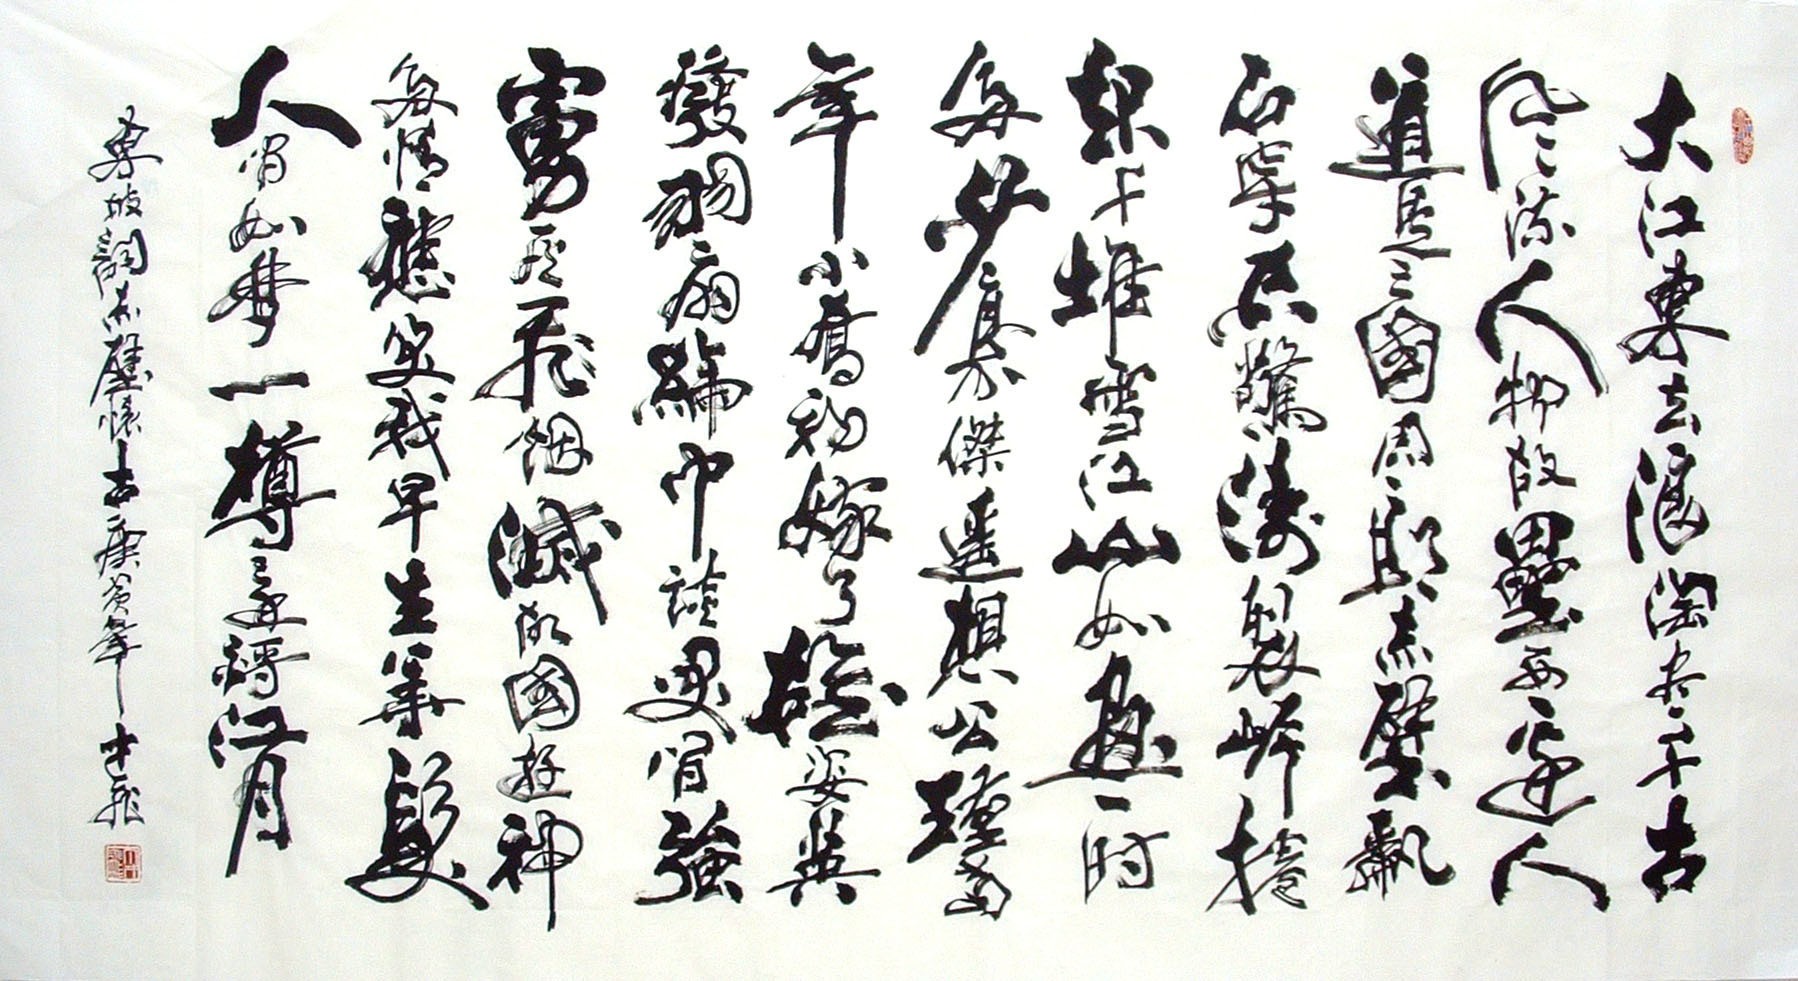 大江東去浪淘盡千古
風流人物故壘西邊人
道是三國周郎赤壁亂
石穿空驚濤裂岸捲
起千堆雪江山如畫一時
多少豪傑遙想公瑾當
年小喬初嫁了雄姿英
發羽扇綸巾談笑間強
虜灰飛烟滅故國游神
多情應笑我早生華髮
人間如夢一樽還酹江月
東坡詞赤壁懷古庚寅年中飛